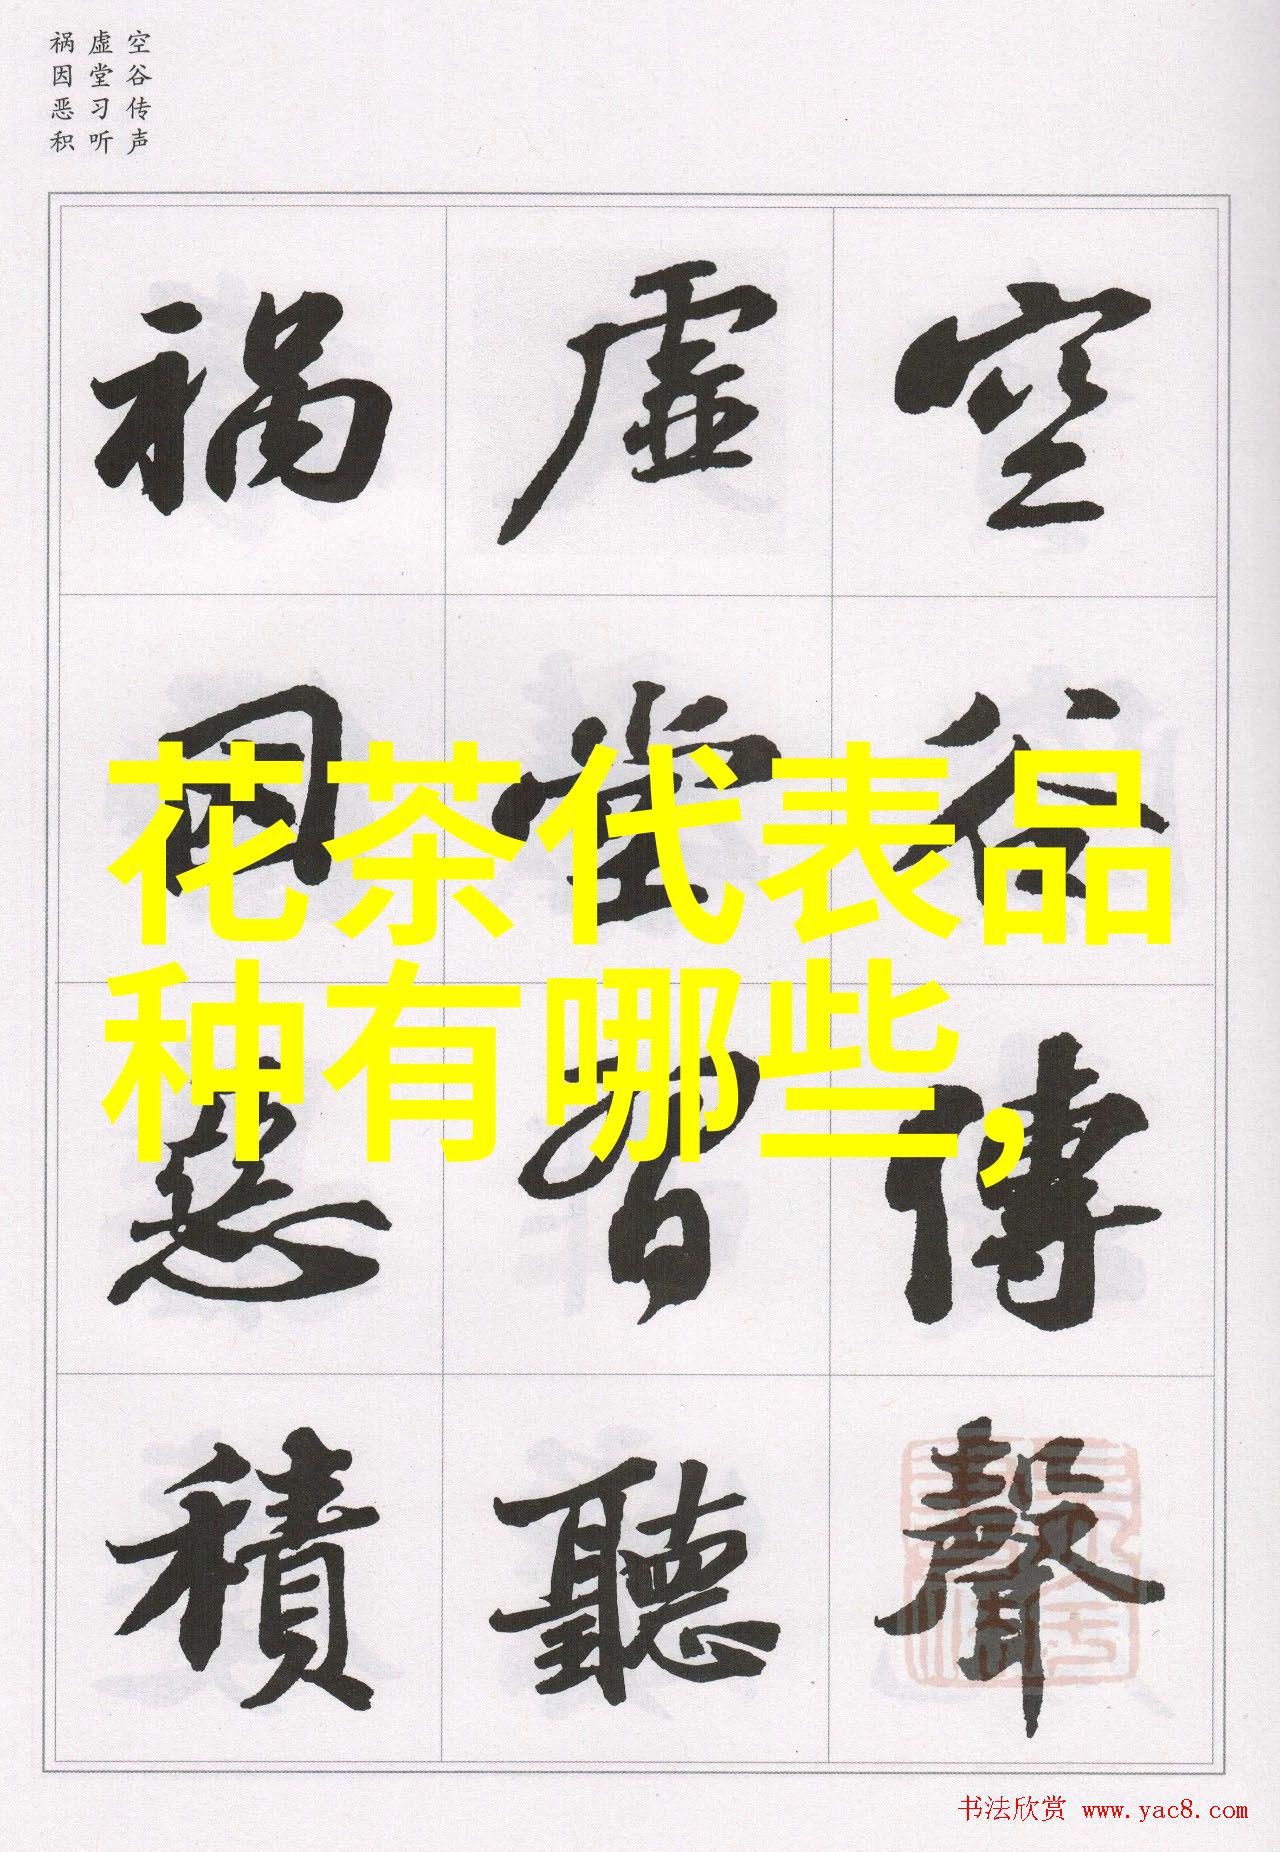 空谷传声
虚堂习听
祸因恶积
空谷傳聲
虛堂習聽
禍因惡積
花茶代表品
种有哪些,
书法欣赏 www.yac8.com